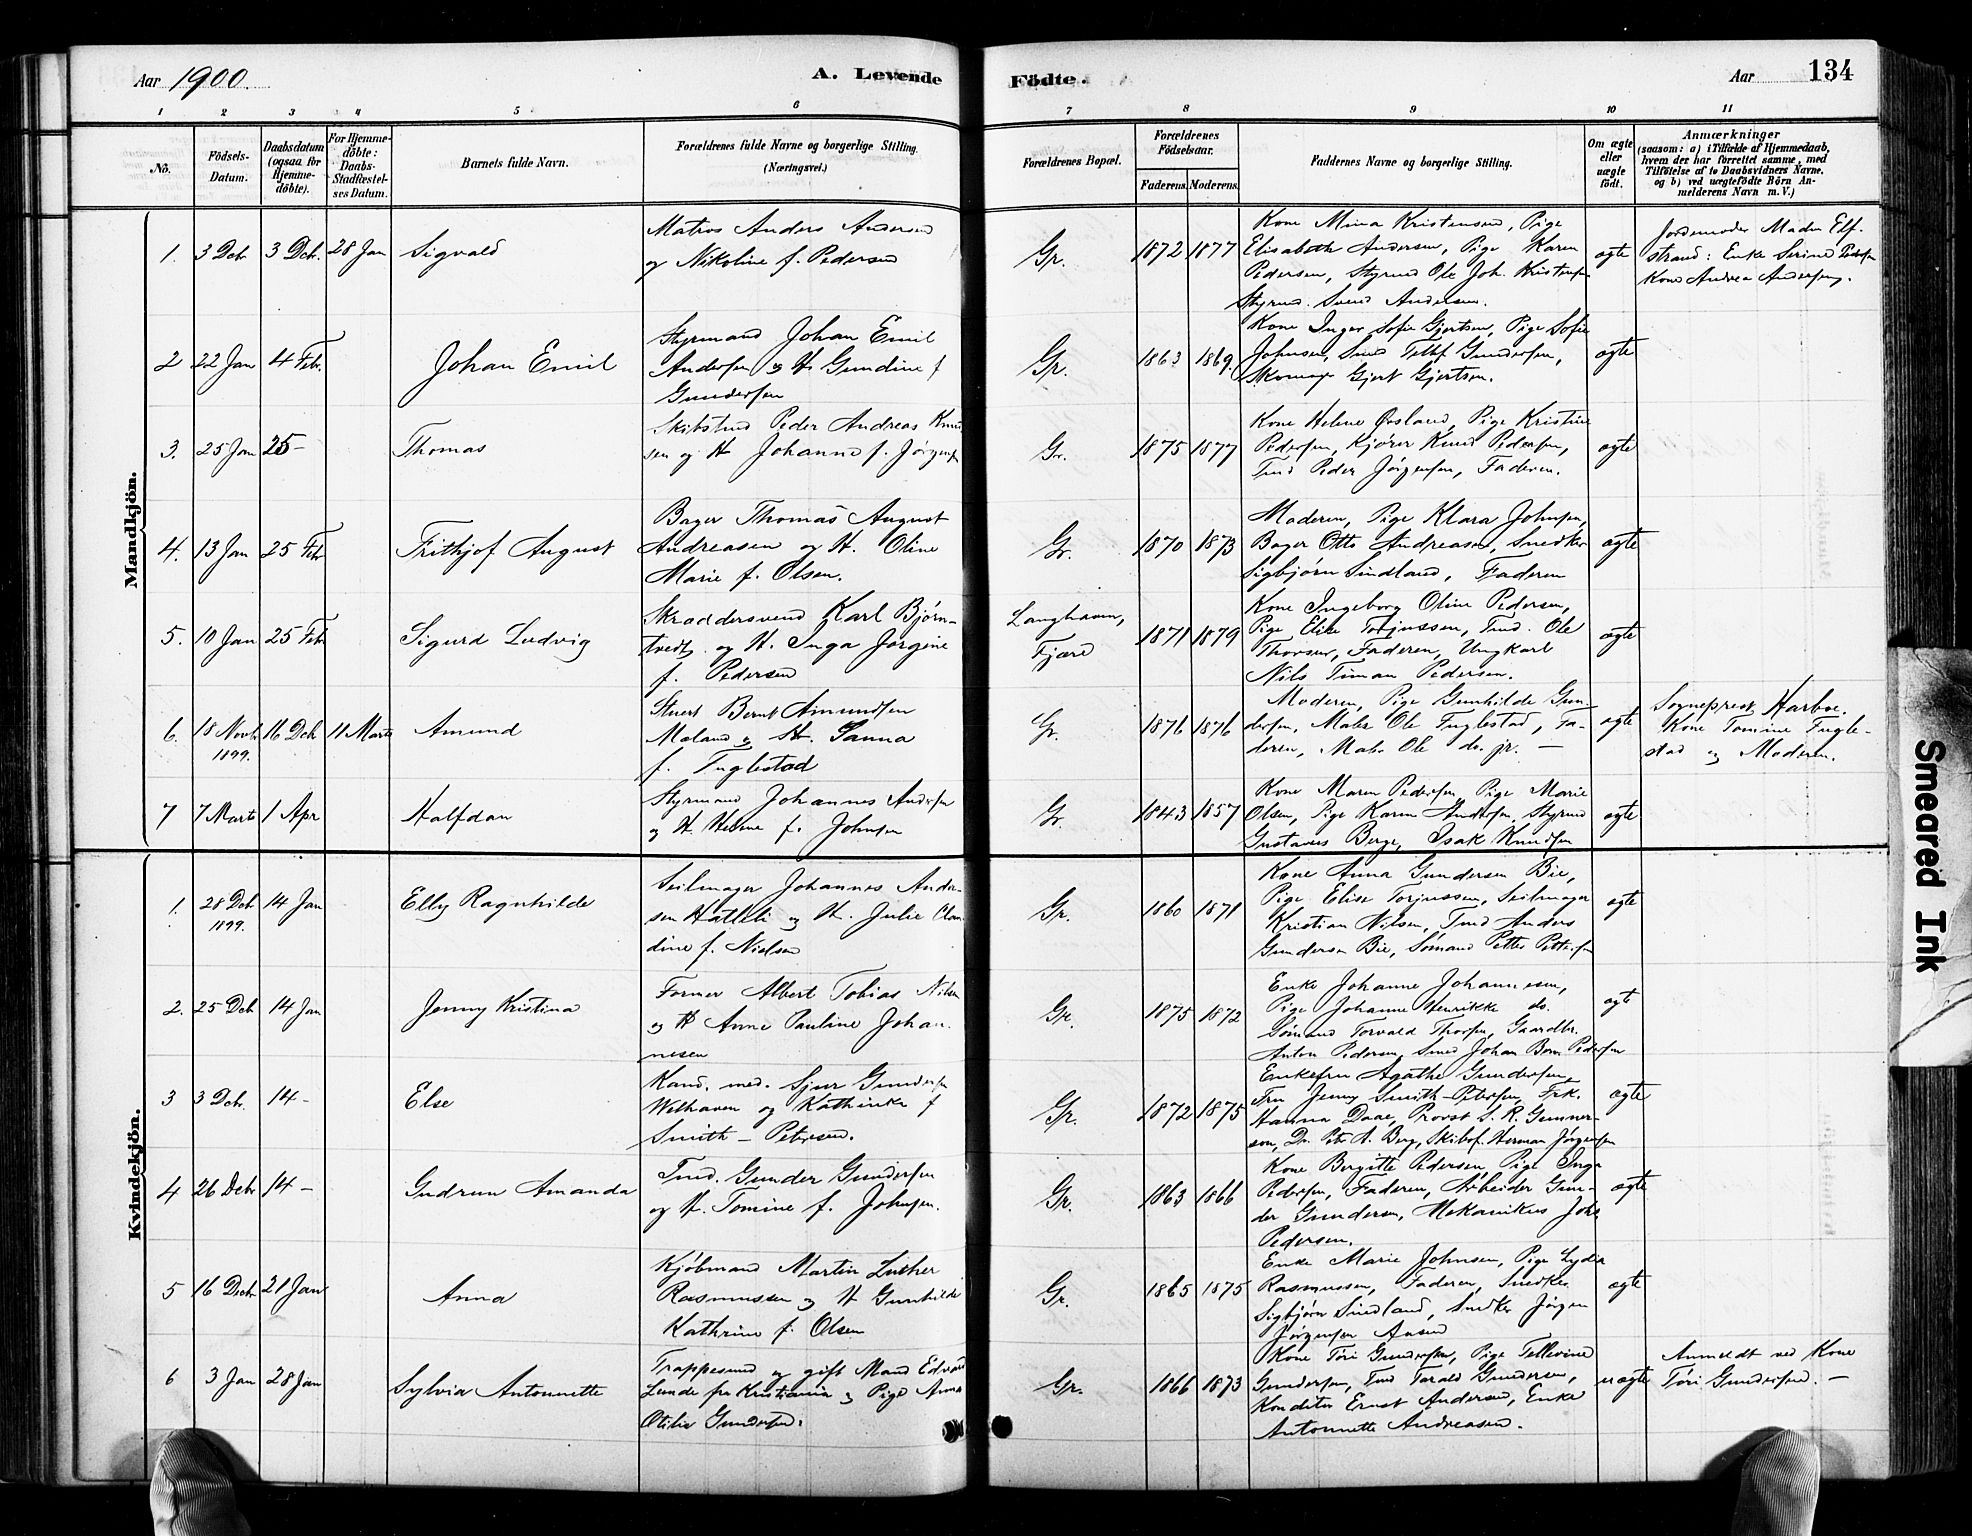 Aar 1900.
A. Levende
Födte.
Aar
134
1 2 3 4 5 6 7 8 9 10 11
No.
Födsels-
Datum.
Daabsdatum
(ogsaa for
Hjemme-
döbte).
For Hjemme-
döbte:
Daabs-
Stadfæstel-
ses Datum.
Barnets fulde Navn.
Forældrenes fulde Navne og borgerlige Stilling.
(Næringsvei.)
Forældrenes Bopæl.
Forældrenes
Födselsaar.
Faderens. Moderens.
Faddernes Navne og borgerlige Stilling.
Om ægte
eller
uægte
födt.
Anmærkninger
(saasom: a) i Tilfælde af Hjemmedaab,
hvem der har forrettet samme, med
Tilföielse af to Daabsvidners Navne,
og b) ved uægtefödte Börn An-
melderens Navn m. V.)
Mandkjön.
1. 3 Deb. 3 Deb. 28 Jan Sigvald
Matros Anders Andersen
og Nikoline f. Pedersen
Gr. 1872 1877
Kone Mina Kristensen, Pige
Elisabeth Andersen, Pige Karen
Pedersen, Styrmd Ole Joh. Kristensen
Styrmd. Svend Andersen.
ægte
Jordemoder Madm Elf-
strand: Enke Serine Pedersen
Kone Andrea Andersen.
2 22 Jan 4 Febr. Johan Emil
Styrmand Johan Emil
Andersen og H. Gundine f
Gundersen
Gr. 1863 1869.
Kone Inger Sofie Gjertsen, Pige Sofie
Johnsen, Smed Tellef Gundersen,
Skomager Gjert Gjertsen.
ægte
3. 25 Jan 25 - Thomas
Skibstmd Peder Andreas Knud
sen og H Johanne f. Jørgensen
Gr. 1875 1877
Kone Helene Øsland, Pige Kristine
Pedersen, Kjører Knud Pedersen,
Tmd Peder Jørgensen, Faderen.
ægte
4. 13 Jan 25 Feb Frithjof August
Bager Thomas August
Andreasen og H. Oline
Marie f. Olsen.
Gr. 1870 1873
Moderen, Pige Klara Johnsen,
Bager Otto Andreasen, Snedker
Sigbjørn Sindland, Faderen
ægte
5. 10 Jan 25 Feb Sigurd Ludvig
Skræddersvend Karl Bjørn-
tvedt og H. Inga Jørgine
f. Pedersen
Langhaven,
Fjære
1871 1879
Kone Ingeborg Oline Pedersen,
Pige Elise Torjussen, Tmd. Ole
Thorsen, Faderen, Ungkarl
Nils Timan Pedersen.
ægte
6. 18 Novb 1899. 16 Deb 11 Marts Amund
Stuert Bernt Amundsen
Moland og H. Sanna
f. Fuglestad
Gr. 1876 1876
Moderen, Pige Gunhilde Gun-
dersen, Maler Ole Fuglestad, Fa-
deren, Maler Ole do. jr. —
ægte
Sogneprest Harboe.
Kone Tomine Fugle-
stad og Moderen.
7 7 Marts 1 Apr Halfdan
Styrmand Johannes Andersen
og H. Helene f. Johnsen
Gr. 1843 1857
Kone Maren Pedersen, Pige Marie
Olsen, Pige Karen Andersen, Styrmd
Gustavus Berge, Isak Knudsen
ægte
Kvindekjön.
1. 28 Deb 1899. 14 Jan Elly Ragnhilde
Seilmager Johannes Ander-
sen Hatleli og H. Julie Clau-
dine f. Nielsen
Gr. 1860 1871
Kone Anna Gundersen Bie,
Pige Elise Torjussen, Seilmager
Kristian Nilsen, Tmd Anders
Gundersen Bie, Sømand Petter Pettersen
ægte
2. 25 Deb 14 Jan Jenny Kristina
Former Albert Tobias Nilsen
og H Anne Pauline Johan-
nesen
Gr. 1875 1872
Enke Johanne Johannesen,
Pige Johanne Henrikke do.
Sømand Torvald Thorsen, Gaardbr.
Anton Pedersen, Smed Johan Bern Pedersen
ægte
3 3 Deb. 14 - Else
Kand. med. Sjur Gundersen
Welhaven og Kathinka f
Smith - Petersen.
Gr. 1872 1875
Enkefru Agathe Gundersen,
Fru Jenny Smith-Petersen, Frk.
Hanna Daae, Provst S. R. Gunner-
son, Dr. Petr A. Berg, Skibsf. Herman Jørgensen
ægte
4 26 Debr 14 - Gudrun Amanda
Tmd. Gunder Gundersen
og H. Tomine f. Johnsen.
Gr. 1863 1866
Kone Bergitte Pedersen, Pige Inga
Pedersen, Faderen, Arbeider Gun-
der Gundersen, Mekanikus Johs
Pedersen.
ægte
5 16 Decb 21 Jan Anna
Kjøbmand Martin Luther
Rasmussen og H Gunhilde
Kathrine f. Olsen
Gr. 1865 1875
Enke Marie Johnsen, Pige Lydia
Rasmussen, Faderen, Snedker
Sigbjørn Sindland, Snedker Jørgen
Jørgensen
ægte
6 3 Jan 28 Jan Sylvia Antonnette
Trappesmed og gift Mand Edvard
Lunde fra Kristiania og Pige Anna
Otilie Gundersen.
Gr. 1866 1873
Kone Tøri Gundersen, Pige Tellevine
Gundersen, Tmd Tarald Gundersen,
Konditor Ernst Andersen, Enke
Antonnette Andreasen.
uægte
Anmeldt ved Kone
Tøri Gundersen. —
Smeared Ink